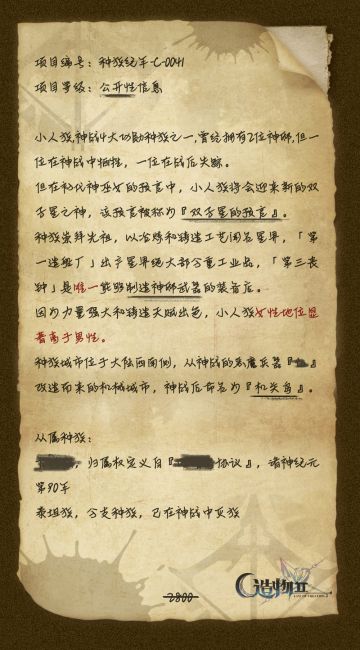 项目编号：种族纪年-C-0041
项目等级：公开性信息
小人族,神战4大功勋种族之一,曾经拥有2位神明,但一
位在神战中牺牲，一位在战后失踪。
但在初代神巫女的预言中，小人族将会迎来新的双
子星之神，该预言被称为『双子星的预言』。
种族崇拜先祖，以冶炼和铸造工艺闻名星界，「第
一造船厂」出产星界绝大部分重工业品，「第三丧
钟」是唯一能够制造神明武器的装备店。
因为力量强大和铸造天赋出色，小人族女性地位显
著高于男性。
种族城市位于大陆西南侧，从神战的恶魔兵器『』
改造而来的机械城市，神战后命名为『机关岛』。
从属种族：
，归属权定义自『协议』，诸神纪元
第90年
泰坦族，分支种族，已在神战中灭族
2800
造物II